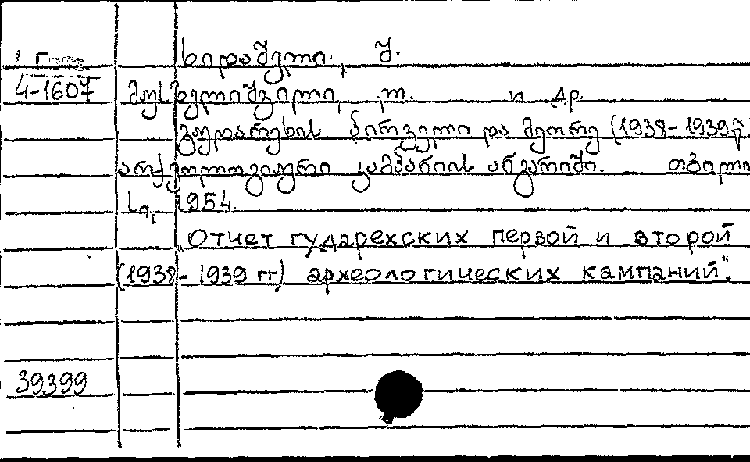 ხიდაშელი, შ.
4-1607 მუსხელიშვილი, ლ. и др.
გუდარეხის პირველი და მეორე (1938-1939წ
არქეოლოგიური კამპანიის ანგარიში. თბილი
სი, 1954.
„Отчет гударехских первой и второй
(1938-1939 гг) археологических кампаний".
39399